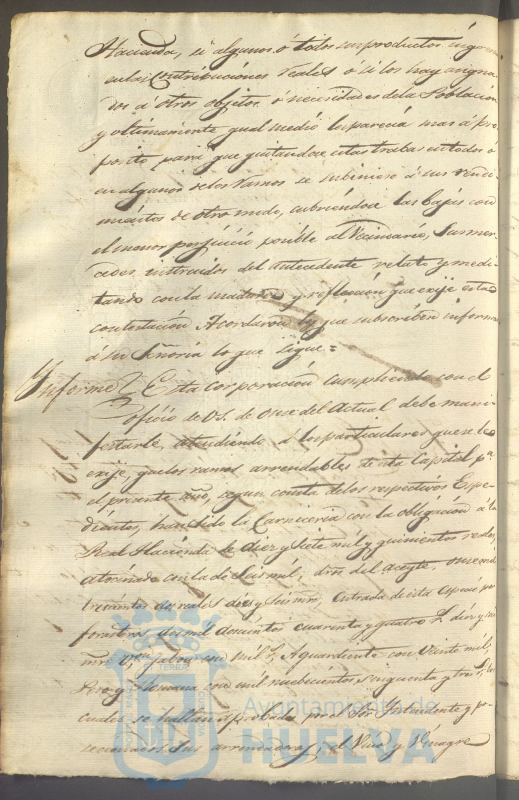 Hacienda, si algunos ó todos sus productos ingresan
en las Contribuciones reales ó si los hay asigna
dos á otros objetos ó necesidades de la Poblacion
y ultimamente qual medio les parecía mas á pro
posito para que quitandose estas trabas en todos ó
en algunos de los Ramos se subiniese á sus rendi
mientos de otro modo, cubriendose las bajas con
el menor perjuicio posible al Vecindario, Sus mer
cedes instruidos del antecedente relato y medi
tando con la madurez y reflección que exije esta
contestacion Acordaron los que subscriben informar
á su Señoria lo que sigue =
Informe Esta Corporacion cumpliendo con el
oficio de V.S. de Once del Actual debe mani
festarle, atendiendo á los particulares que se le
exije, que los ramos arrendables de esta Capital pa
el presente año, segun consta de los respectivos Espe
dientes, han sido la Carneceria con la obligacion á la
Real Hacienda de diez y siete mil y quinientos reales,
atocinado con la de Seis mil, dros del aceyte once mil
trecientos dos reales diez y seis mrs, entrada de esta especie por
forasteros dos mil docientos cuarenta y quatro r. diez y
mrs, jabon con mil r, Aguardiente con Veinte mil,
Peso y Romana con mil nuebecientos sinquenta y tres r, los
cuales se hallan aprobados por el Sor Intendente y po
secionados sus arrendadores; el Vino y Vinagre
Ayuntamiento de
HUELVA